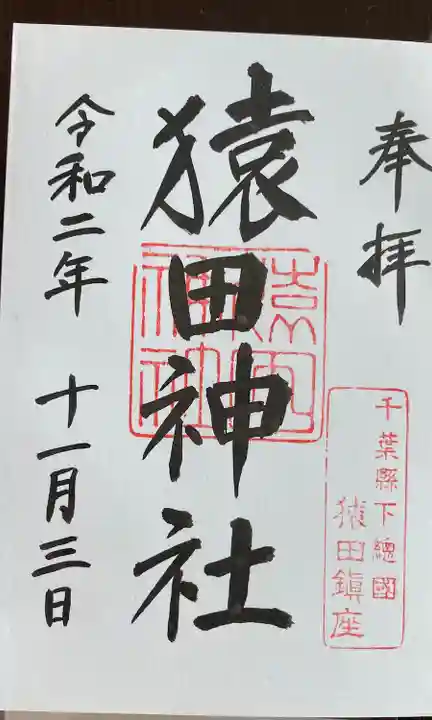 奉拝
千葉縣下總國
猿田鎮座
猿田神社
猿田神社
令和二年 十一月三日